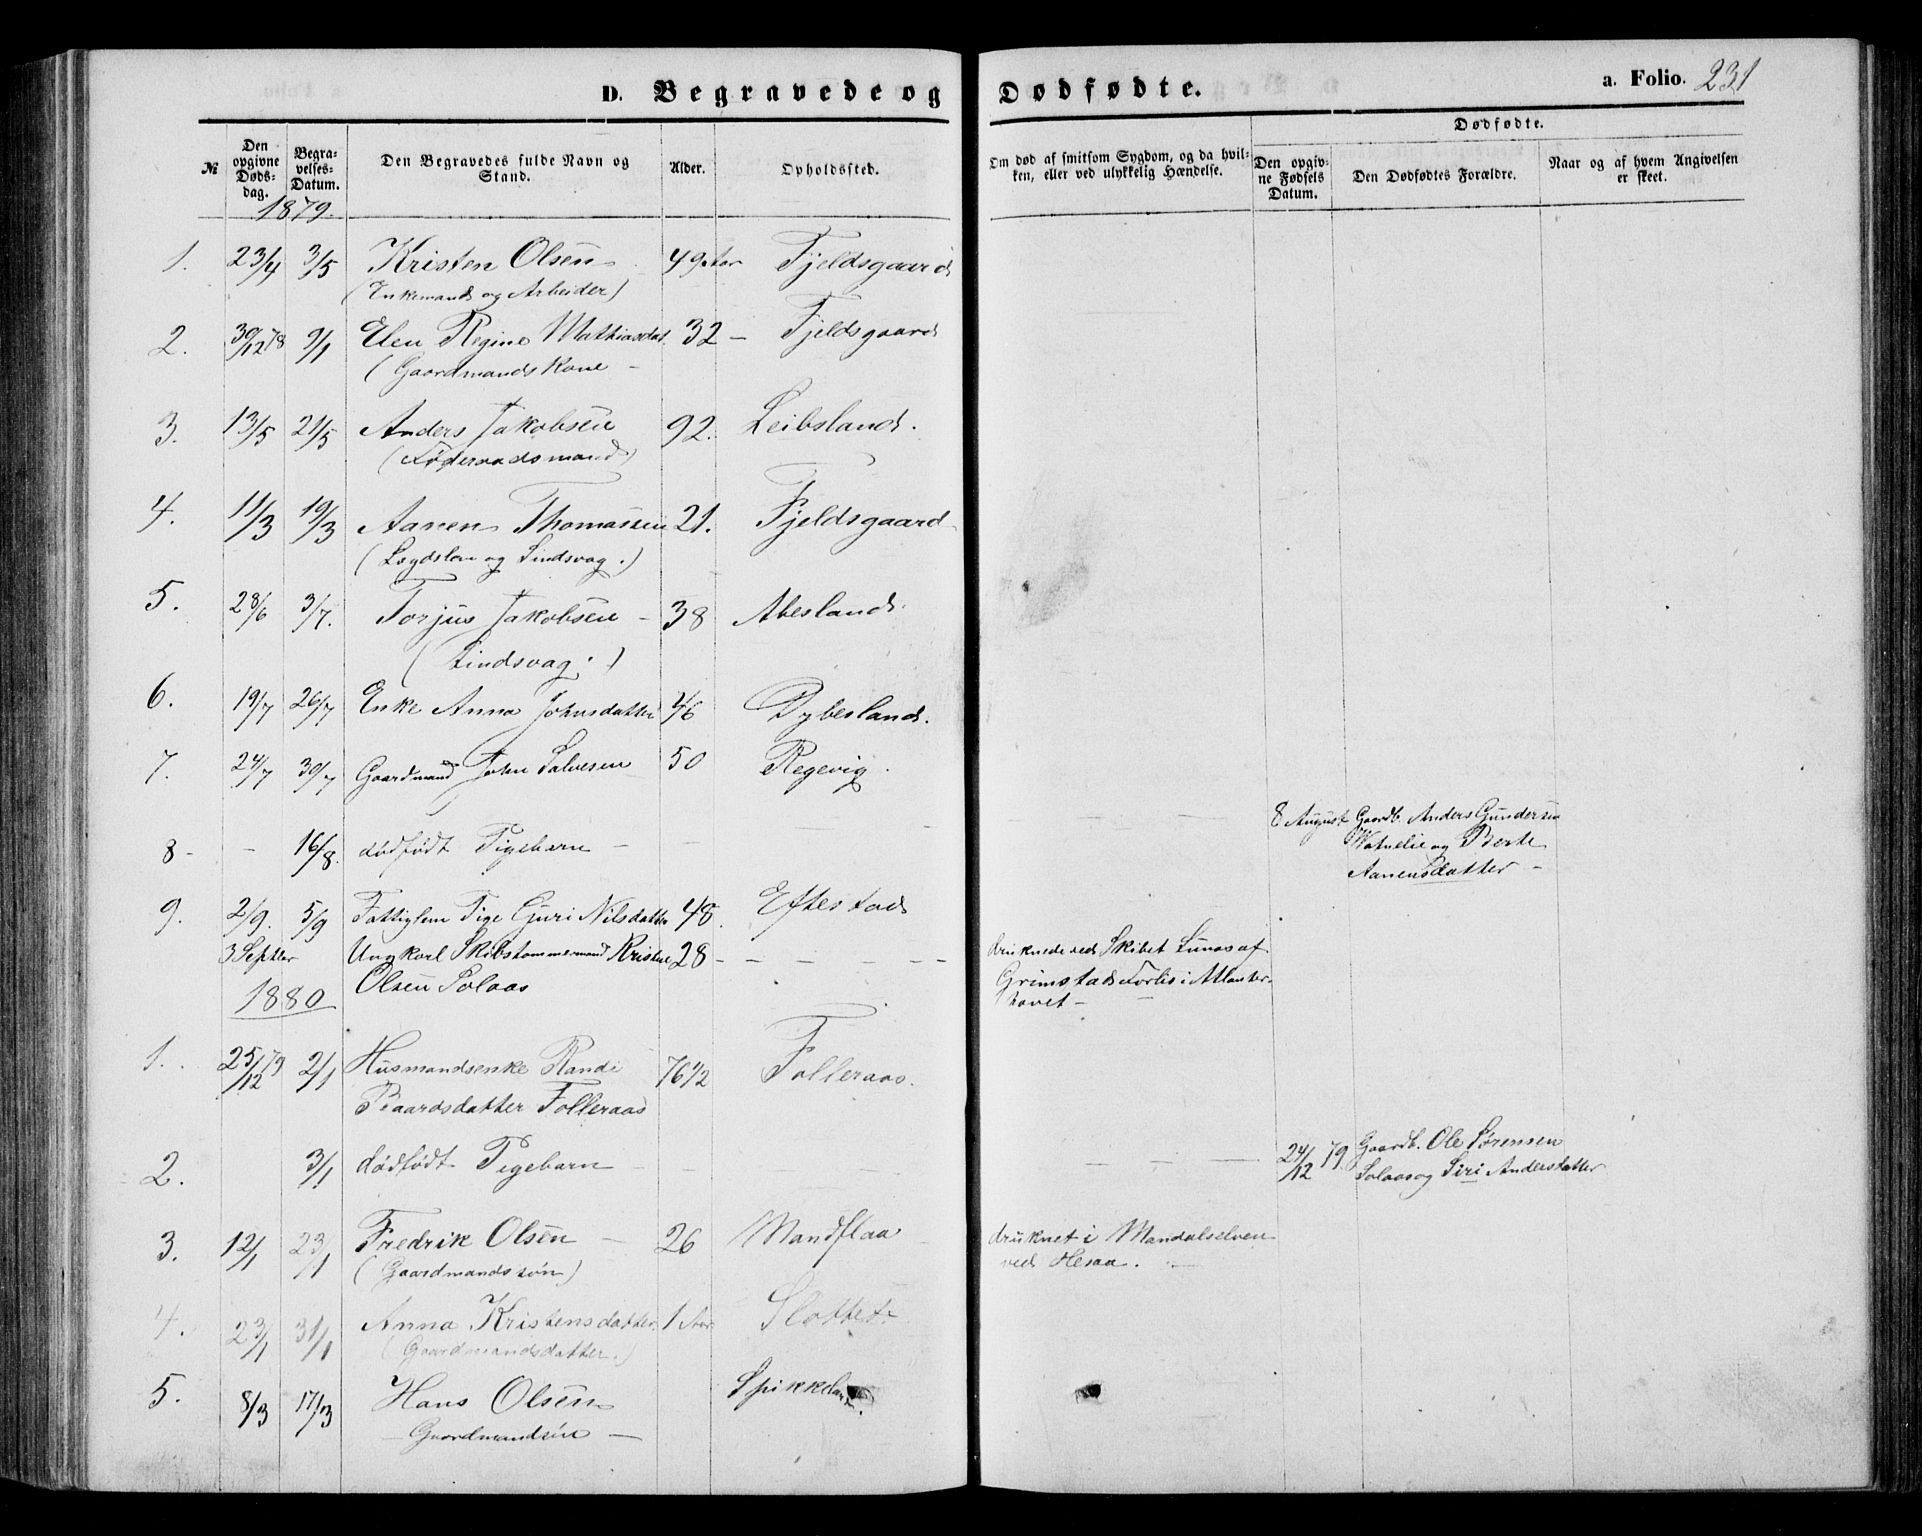 D. Begravede og Dødfødte.
a. Folio. 231
№
Den opgivne Døds-dag.
Begra-velses-Datum.
Den Begravedes fulde Navn og Stand.
Alder.
Opholdssted.
Om død af smitsom Sygdom, og da hvil-ken, eller ved ulykkelig Hændelse.
Dødfødte.
Den opgiv-ne Fødsels Datum.
Den Dødfødtes Forældre.
Naar og af hvem Angivelsen er skeet.
1879.
1. 23/4 3/5 Kristen Olsen 49 Aar Fjeldsgaard
(Enkemand og Arbeider)
2. 30/12 78 9/1 Elen Regine Mathiasdat 32 – Fjeldsgaard
(Gaardmandskone –
3. 13/5 21/5 Anders Jakobsen 92. Leibsland.
(Føderaadsmand)
4. 11/3 19/3 Aanen Thomassen 21. Fjeldsgaard
(Lægdslem og Sindsvag.)
5. 28/6 3/7. Torjus Jakobsen – 38 Abesland.
(Sindsvag.)
6. 19/7 26/7 Enke Anna Johnsdatter 46 Dybesland.
7. 24/7 30/7 Gaardmand John Salvesen 50 Regevig.
8 – – 16/8. dødfødt Pigebarn – – – – – 8 August Gaardb. Anders Gundersen
og Berte
Aanensdatter –
9. 2/9. 5/9 Fattiglem Pige Guri Nilsdatter 48. Eftestad
3 Septbr Ungkarl Skibstømmermand Kristen 28 – – – – – – druknede ved Skibet Lunas af
Olsen Solaas Grimstads Forlis i Atlanter-
havet –
1880
1. 25/12 79 2/1 Husmandsenke Randi 76 1/2 Folleraas.
Baardsdatter Folleraas
2. 3/1 dødfødt Pigebarn – – – – – 24/12 79 Gaardb. Ole Sørensen
Solaas og Siri Andersdatter
3. 12/1 23/1 Fredrik Olsen – 26 Mandflaa druknet i Mandalselven
(Gaardmandssøn) ved Hesaa. –
4. 23/1 31/1 Anna Kristensdatter 1 Aar Slottet
(Gaardmandsdatter.)
5. 8/3 17/3 Hans Olsen
– Gaardmandsøn –